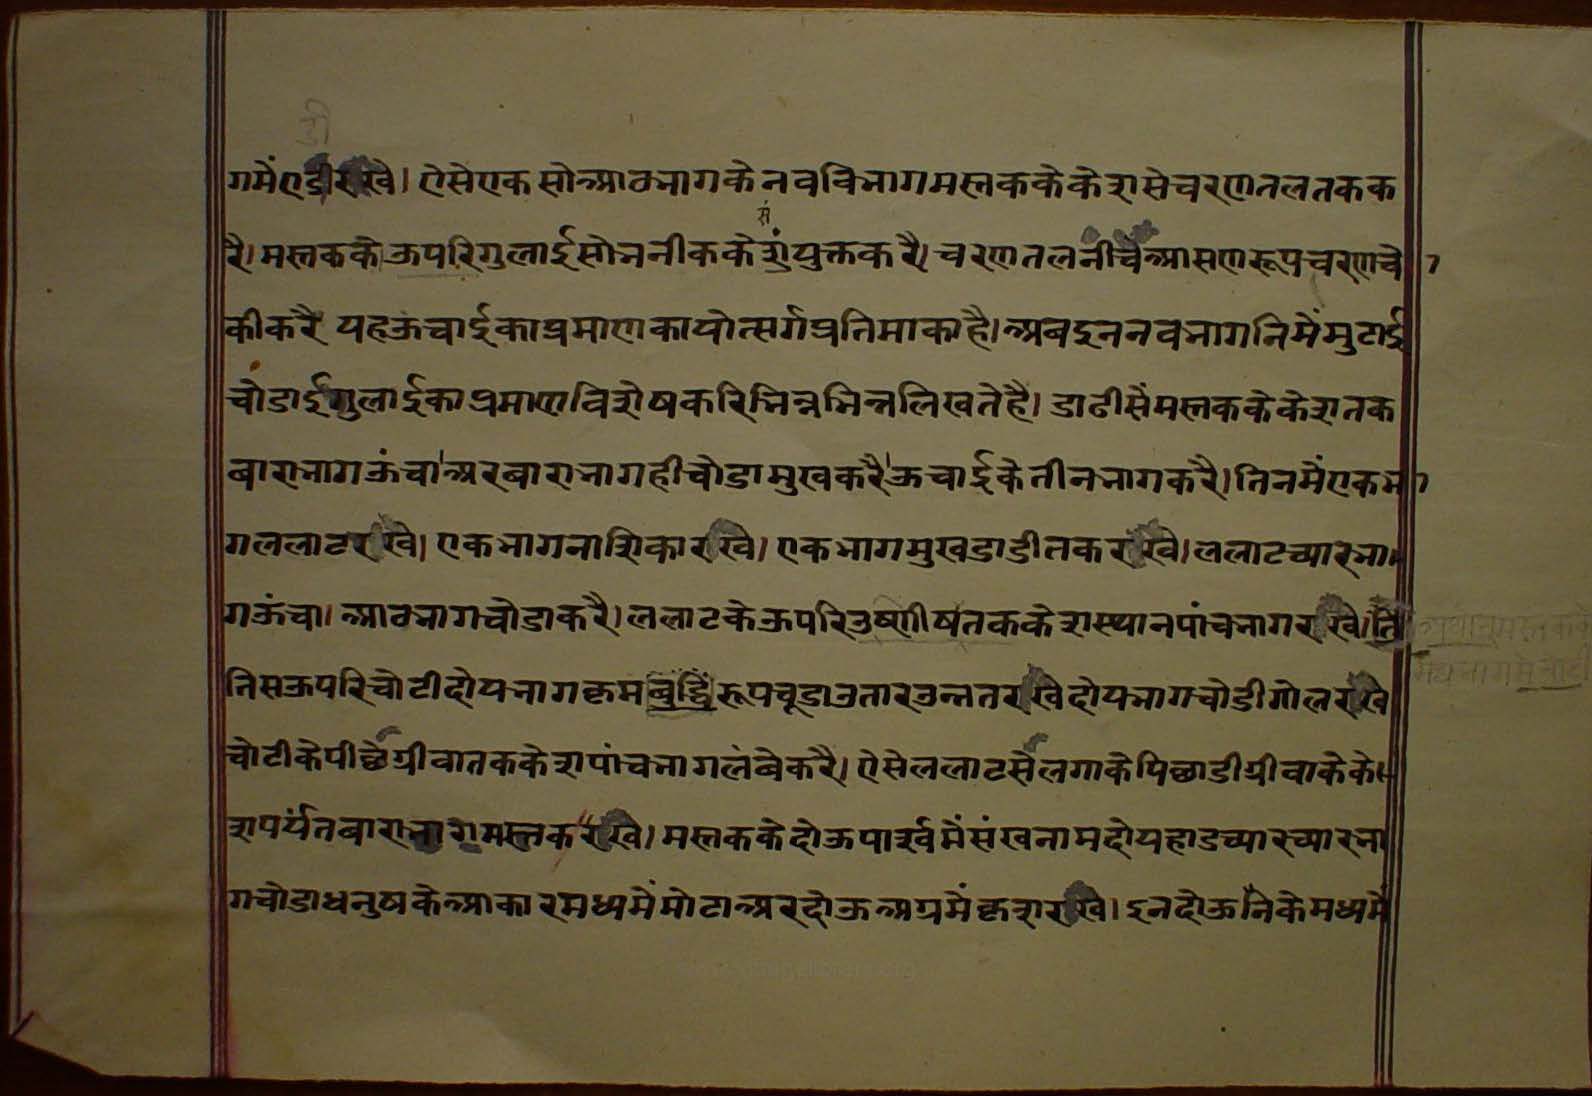 गमेंएडीरखे। ऐसेएकसोआठभागकेनवविभागमस्तककेकेशसेचरणतलतकक
रै। मस्तककेऊपरिगुलाईसोभनीककेशसंयुक्तकरै। चरणतलनीचैआसणरूपचरणचो
कीकरै यहऊंचाईकाप्रमाणकायोत्सर्गप्रतिमाकाहै। अबइननवभागनिमेंमुटाई
चोडाईगुलाईकाप्रमाणविशेषकरिभिन्नभिन्नलिखतेहै। डाढीसैंमस्तककेकेशतक
बाराभागऊंचा अरबाराभागहीचोडामुखकरै ऊचाईकेतीनभागकरै। तिनमेंएकभा
गललाटरखे। एकभागनाशिकारखे। एकभागमुखडाडीतकरखे। ललाटच्यारभा
गऊंचा। आठभागचोडाकरै। ललाटकेऊपरिउष्णीषतककेशस्थानपांचभागरखे। ति
निसऊपरिचोटीदोयभागक्रमरूपचूडाउतारउन्नतरखेदोयभागचोडीगोलरखे
चोटीकेपीछैग्रीवातककेशपांचभागलंबेकरै। ऐसेललाटसैंलगाकेपिछाडीग्रीवाकेके
शपर्यंतबाराभागमस्तकरखे। मस्तककेदोऊपार्श्वमेंसंखनामदोयहाडच्यारच्यारभा
गचोडाधनुषकेआकारमध्यमेंमोटाअरदोऊअग्रमेंकृशरखे। इनदोऊनिकेमध्यमें